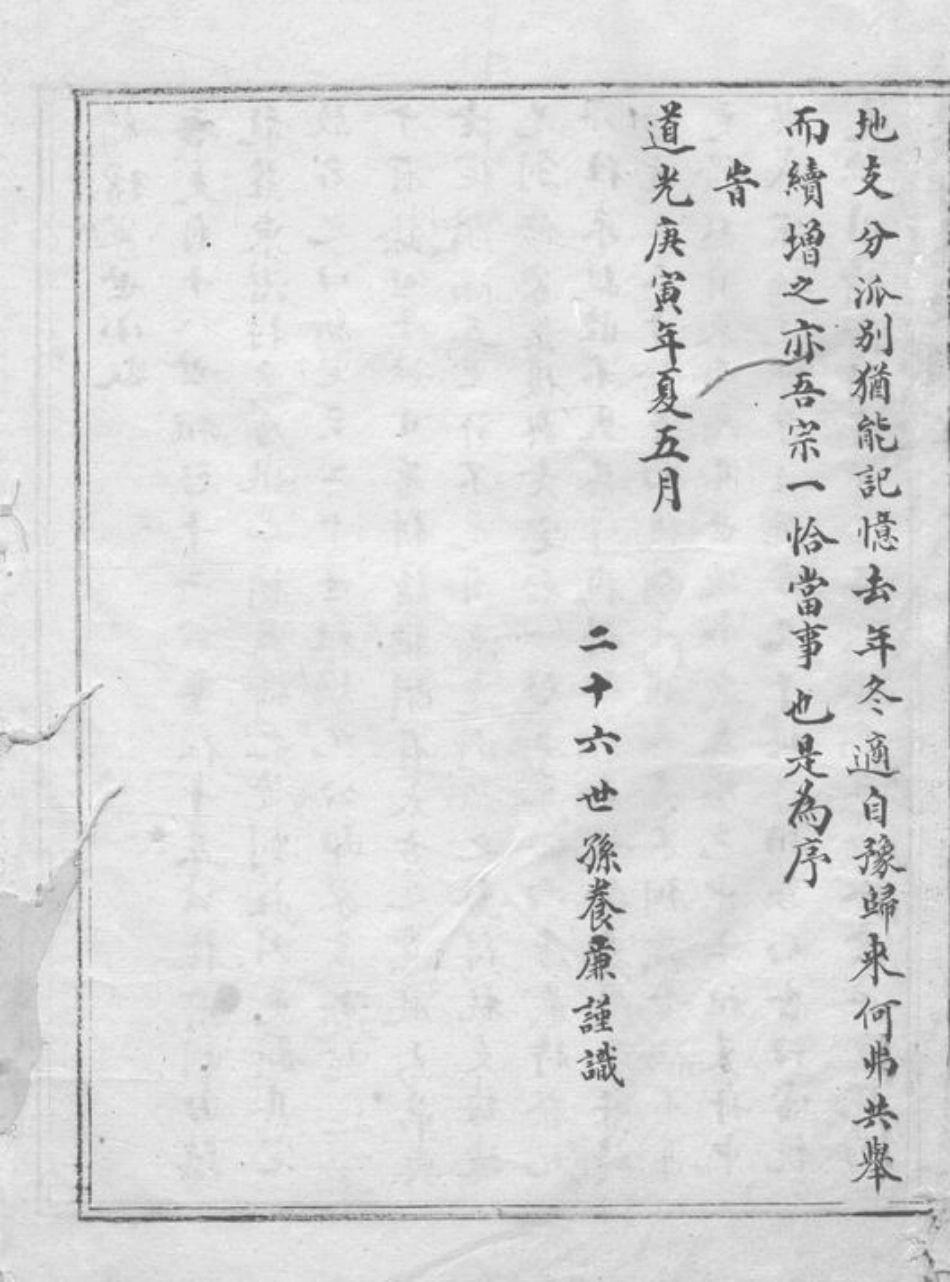 地支分派別猶能記憶去年冬適自豫歸來何弗共舉
而續增之亦吾宗一恰當事也是為序
旹
道光庚寅年夏五月
二十六世孫養廉謹識